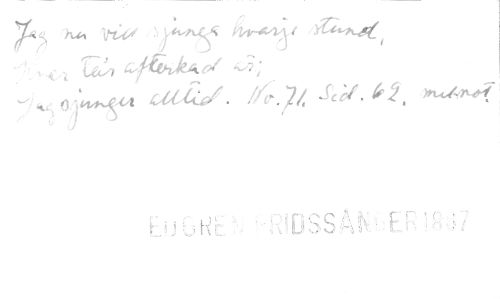 Jag nu vill sjunga hvarje stund,
hvar tår aftorkad är;
Jag sjunger alltid. No. 71. Sid. 62. med not.
EDGREN FRIDSSÅNGER 1887